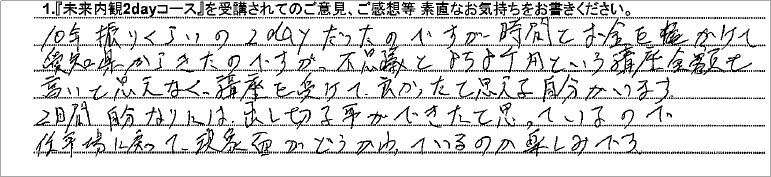 1.『未来内観2dayコース』を受講されてのご意見、ご感想等 素直なお気持ちをお書きください。
10年振りくらいの2dayだったのですが時間とお金を掛けて
愛知県からきたのですが、不思議と 講座金額も
高いと思えなく、講座を受けて、良かったと思える自分がいます。
2日間自分なりには、出し切る事ができたと思っているので
仕事場に戻って、現象面がどう変われているのか楽しみです。